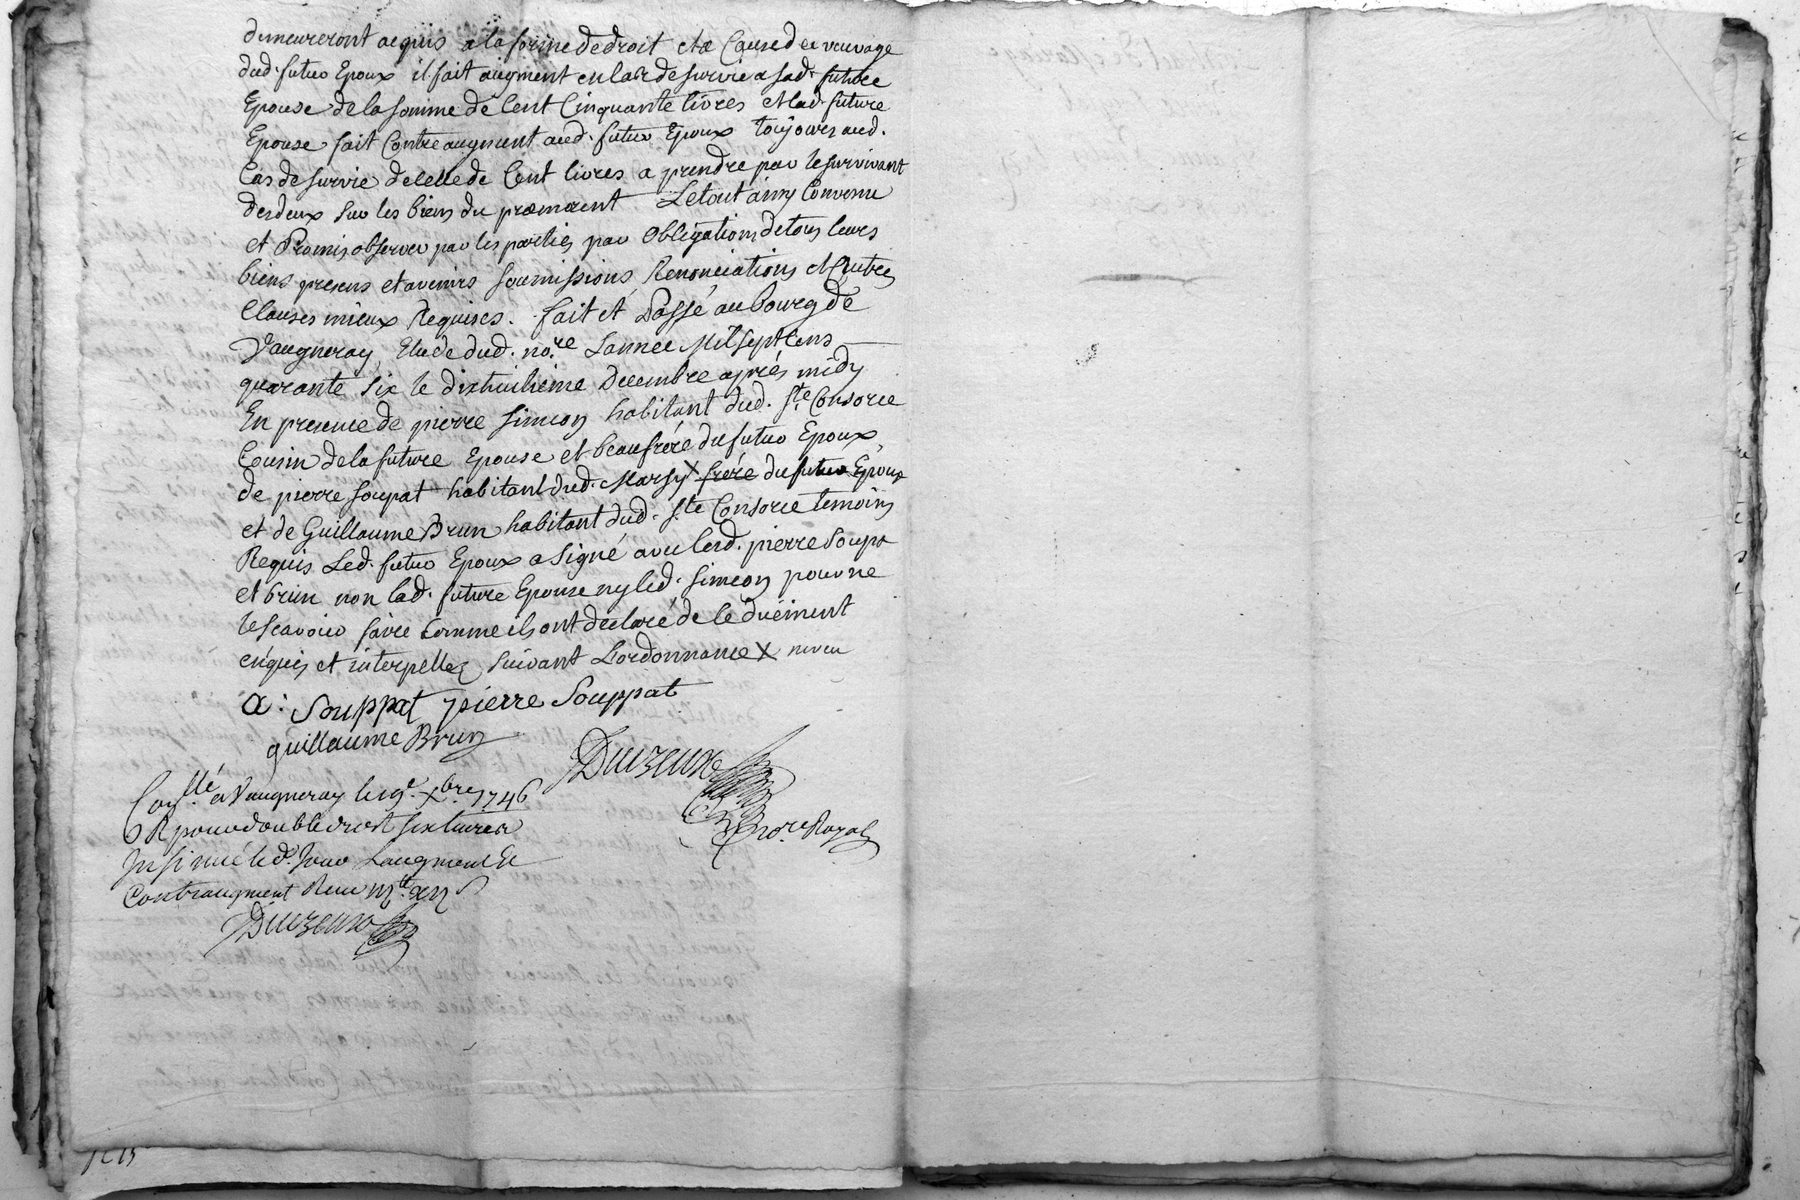 demeureront acquis a la forme de droit et a Cause de ce veuvage
dud. futur Epoux il fait augment en cas de survie a sad. future
Epouse de la somme de Cent Cinquante livres et lad. future
Epouse fait Contre augment aud. futur Epoux toujours aud.
Cas de survie de celle de Cent livres a prendre par le survivant
des deux sur les biens du premourent Le tout ainsy Convenu
et Promis observer par les parties par Obligations de tous leurs
biens presens et avenirs soumissions Renonciations et Autres
Clauses mieux Requises. fait et Passé au bourg de
Vaugneray Etude dud. no.re L'annee Mil sept Cens
quarante six le dixhuitieme Decembre aprés midy
En presence de pierre simeon habitant dud. Ste Consorce
Cousin de la future Epouse et beaufrére du futur Epoux
de pierre soupat habitant dud. Marsy X frére du futur Epoux
et de Guillaume Brun habitant dud. Ste Consorce temoins
Requis Led. futur Epoux a signé avec lesd. pierre soupat
et brun non lad. future Epouse ny led. simeon pour ne
le scavoir faire Comme ils ont déclaré de le düément
enquis et interpellez suivant L'ordonnance X neveu
a: Souppat pierre Souppat
guillaume Brun
Duizeux
no.re Royal
Con.llé a Vaugneray le 19e Xbre 1746
R pour double droit six livres
Insinué led. Jour Laugment et
Contraugment Recu
Duizeux